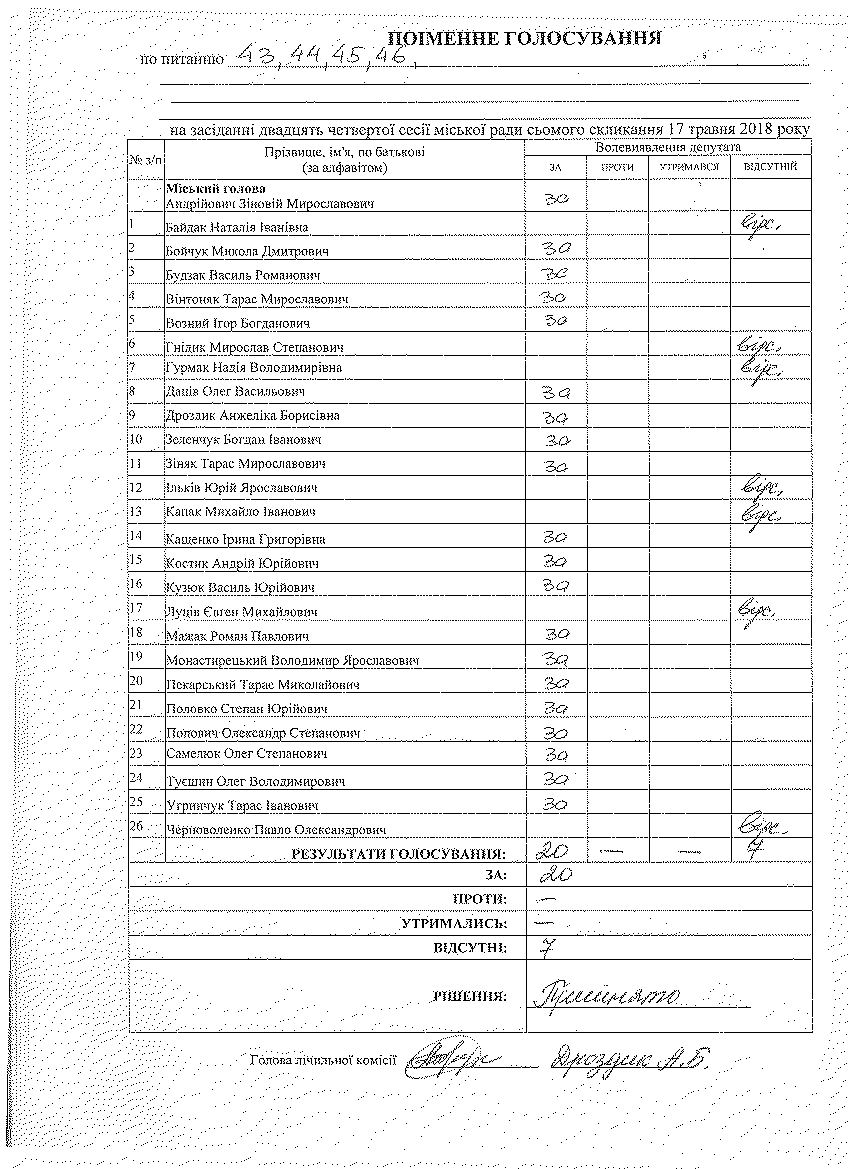 ПОІМЕННЕ ГОЛОСУВАННЯ
по питанню 43, 44, 45, 46,
на засіданні двадцять четвертої сесії міської ради сьомого скликання 17 травня 2018 року
№ з/п Прізвище, ім'я, по батькові (за алфавітом) Волевиявлення депутата
ЗА ПРОТИ УТРИМАВСЯ ВІДСУТНІЙ
Міський голова
Андрійович Зіновій Мирославович за
1 Байдак Наталія Іванівна відс.
2 Бойчук Микола Дмитрович за
3 Будзак Василь Романович за
4 Вінтоняк Тарас Мирославович за
5 Возний Ігор Богданович за
6 Гнідик Мирослав Степанович відс.
7 Гурмак Надія Володимирівна відс.
8 Даців Олег Васильович за
9 Дроздик Анжеліка Борисівна за
10 Зеленчук Богдан Іванович за
11 Зіняк Тарас Мирославович за
12 Ільків Юрій Ярославович відс.
13 Капак Михайло Іванович відс.
14 Кащенко Ірина Григорівна за
15 Костик Андрій Юрійович за
16 Кузюк Василь Юрійович за
17 Луців Євген Михайлович відс.
18 Мажак Роман Павлович за
19 Монастирецький Володимир Ярославович за
20 Пекарський Тарас Миколайович за
21 Половко Степан Юрійович за
22 Попович Олександр Степанович за
23 Самелюк Олег Степанович за
24 Туєшин Олег Володимирович за
25 Угринчук Тарас Іванович за
26 Черноволенко Павло Олександрович відс.
РЕЗУЛЬТАТИ ГОЛОСУВАННЯ: 20 — — 7
ЗА: 20
ПРОТИ: —
УТРИМАЛИСЬ: —
ВІДСУТНІ: 7
РІШЕННЯ: Прийнято
Голова лічильної комісії Дроздик А.Б.